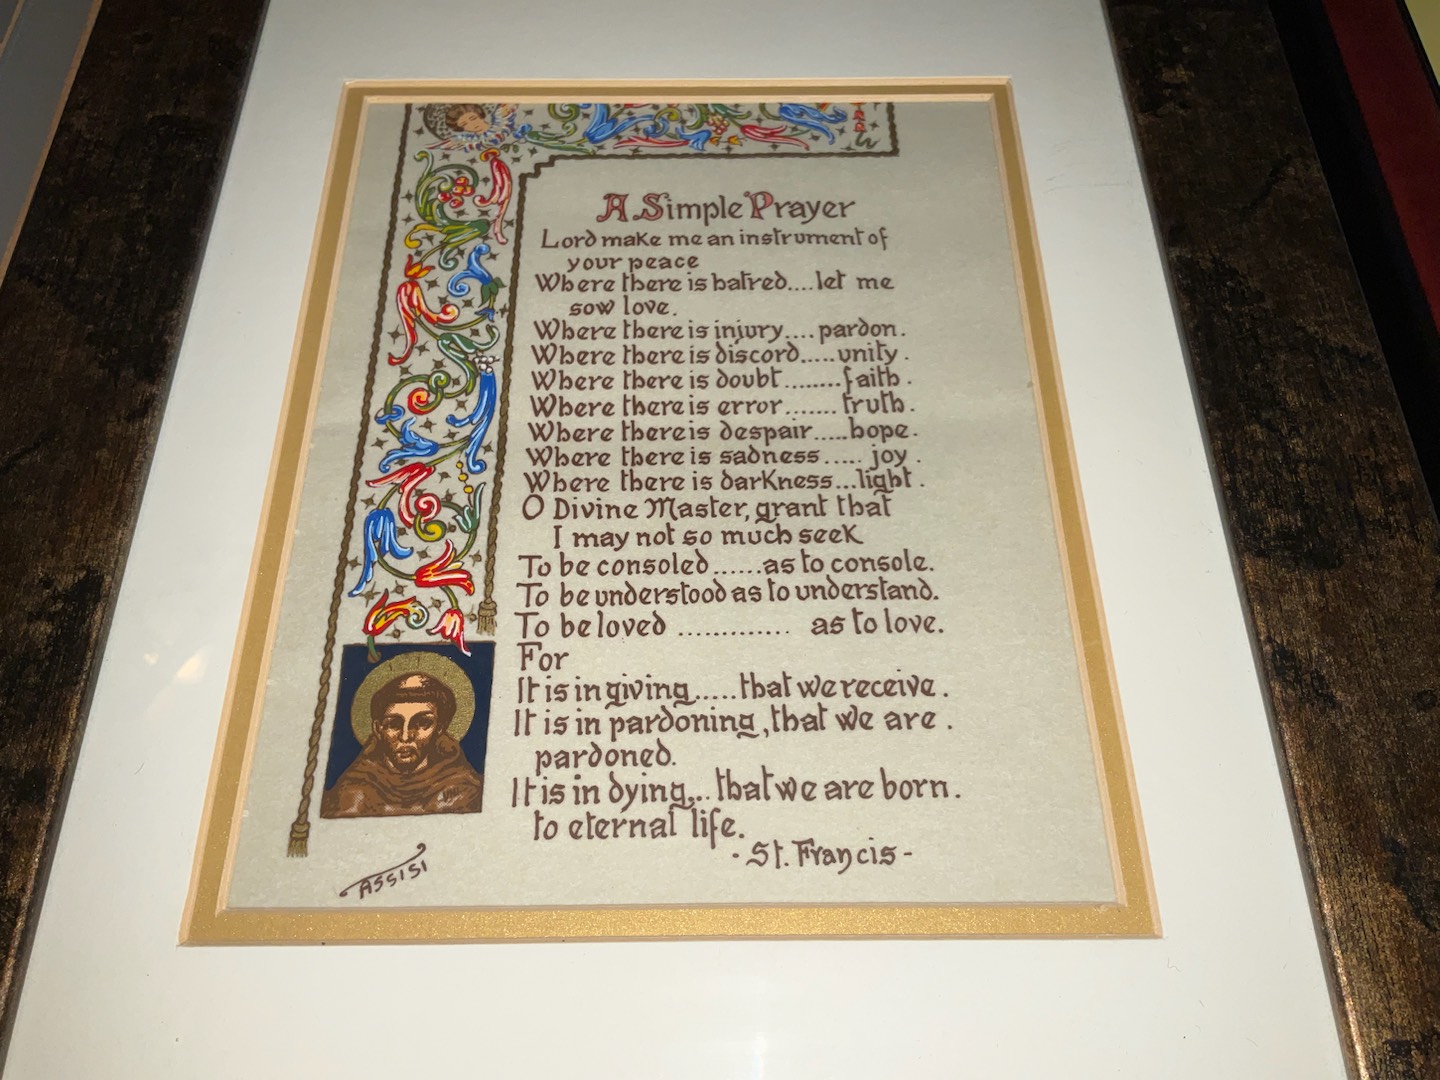 A Simple Prayer
Lord make me an instrument of
your peace
Where there is hatred....let me
sow love.
Where there is injury....pardon.
Where there is discord.....unity.
Where there is doubt........faith.
Where there is error.......truth.
Where there is despair.....hope.
Where there is sadness ..... joy.
Where there is darkness...light.
O Divine Master, grant that
I may not so much seek
To be consoled......as to console.
To be understood as to understand.
To be loved ............. as to love.
For
It is in giving.....that we receive.
It is in pardoning, that we are.
pardoned.
It is in dying... that we are born.
to eternal life.
- St. Francis -
ASSISI